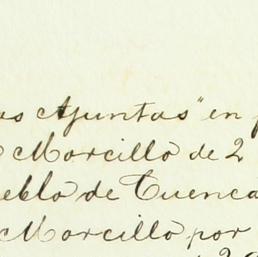 as Ajuntas" en
Morcillo de 2
eblo de Cuenca
Morcillo por